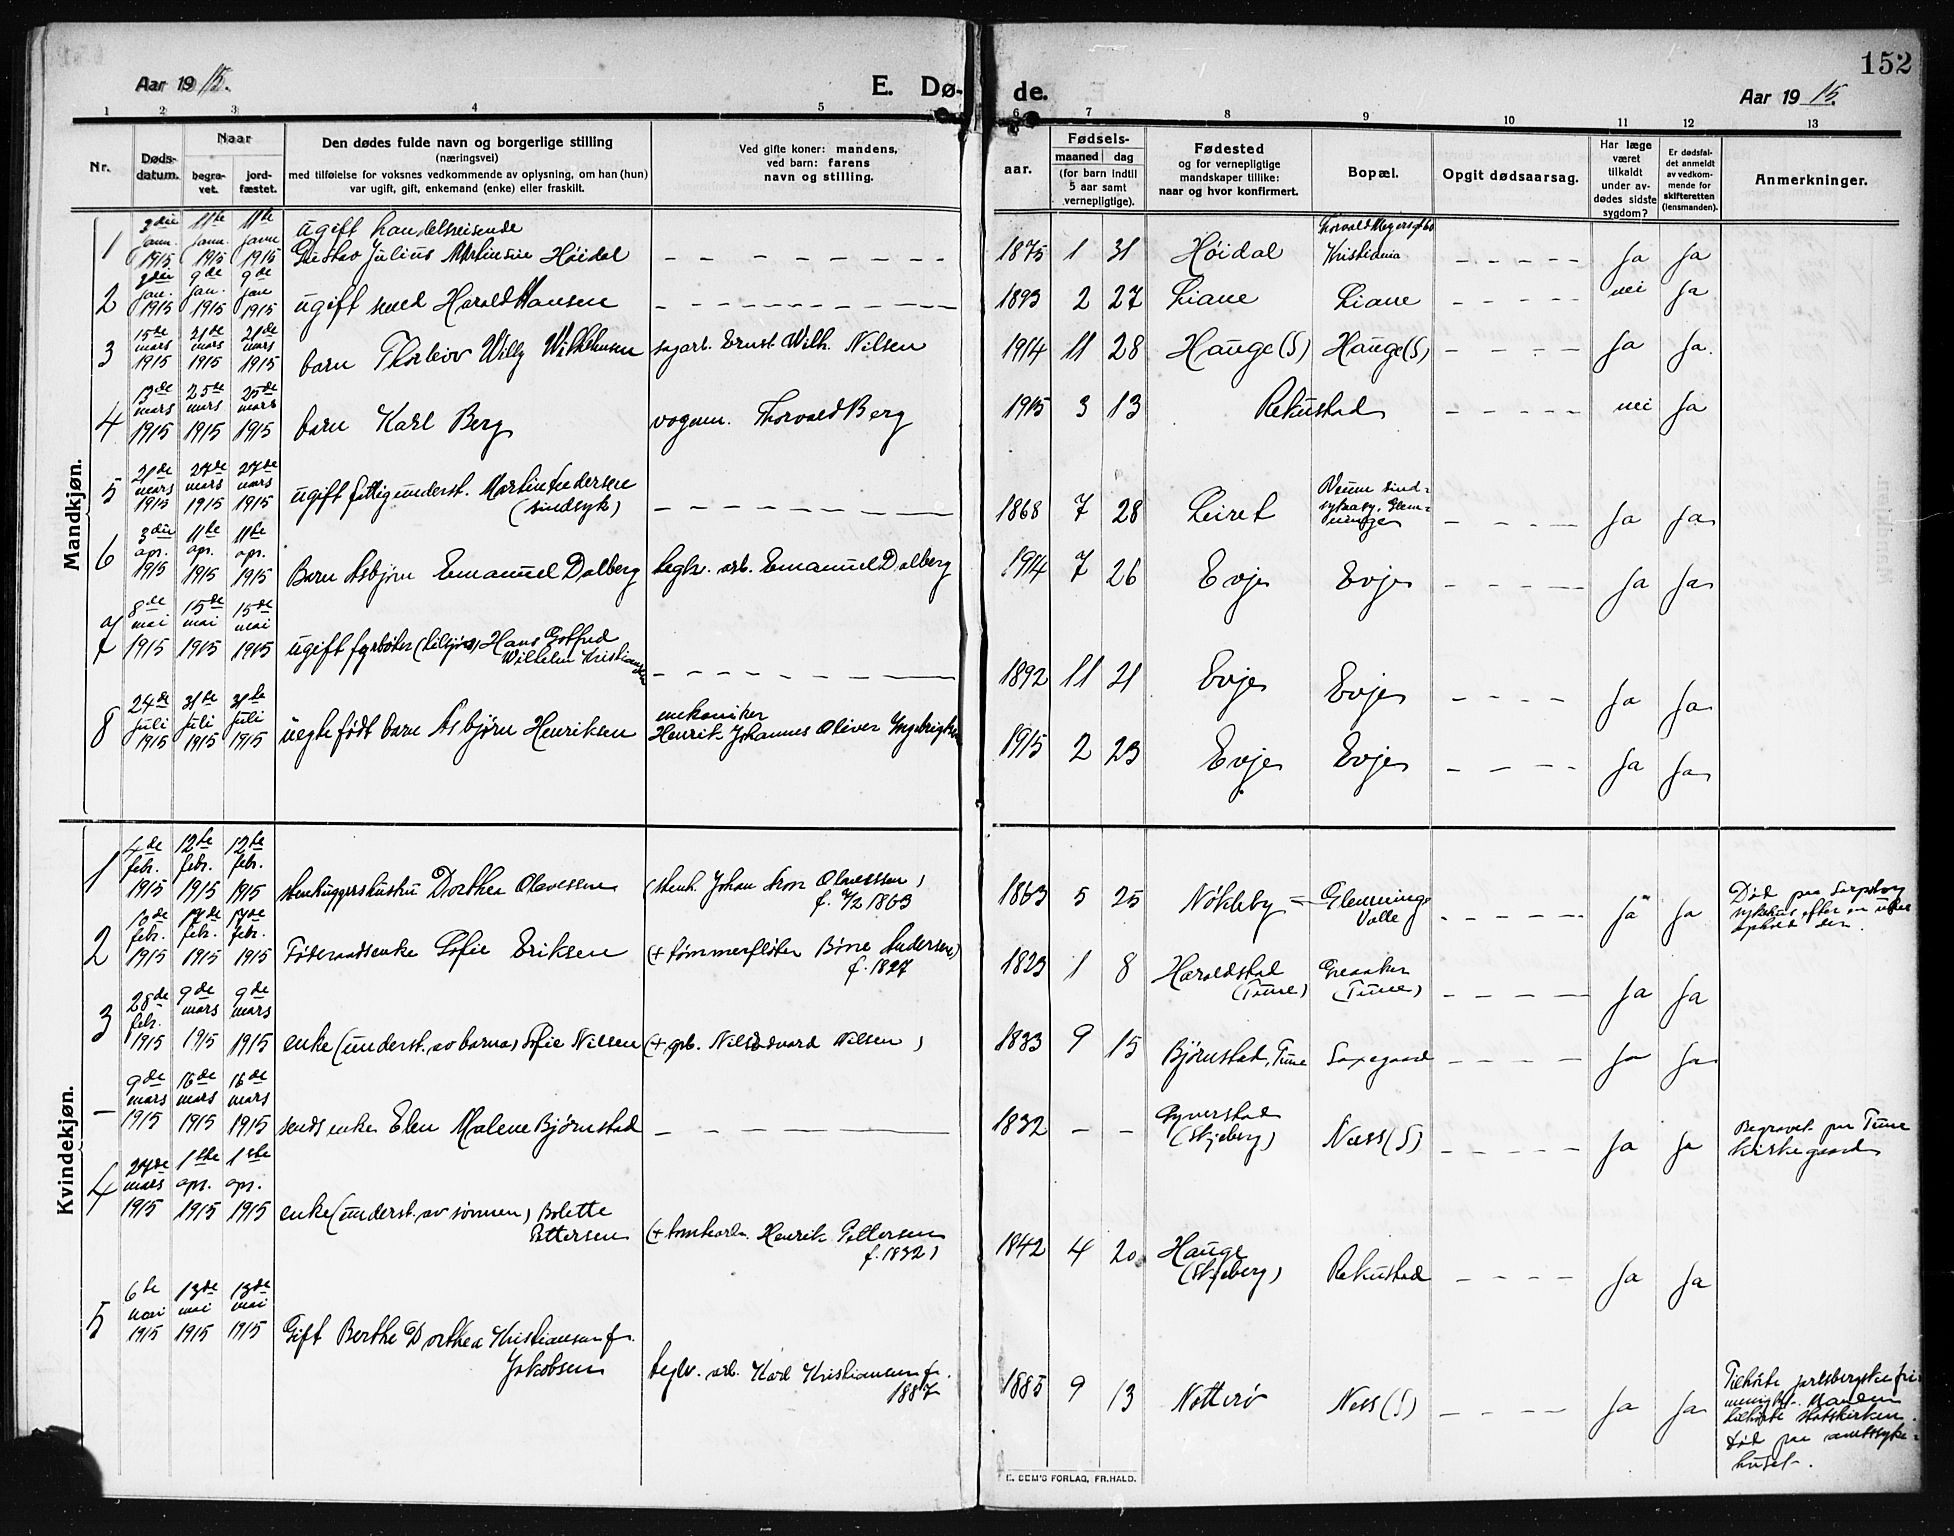 152
Aar 1915.
E. Dø-
de.
Aar 1915.
1 2 3 4 5 6 7 8 9 10 11 12 13
Nr.
Døds-
datum.
Naar
begra-
vet.
jord-
fæstet.
Den dødes fulde navn og borgerlige stilling
(næringsvei)
med tilføielse for voksnes vedkommende av oplysning, om han (hun)
var ugift, gift, enkemand (enke) eller fraskilt.
Ved gifte koner: mandens,
ved barn: farens
navn og stilling.
Fødsels-
aar.
maaned dag
(for barn indtil
5 aar samt
vernepligtige).
Fødested
og for vernepligtige
mandskaper tillike:
naar og hvor konfirmert.
Bopæl.
Opgit dødsaarsag.
Har læge
været
tilkaldt
under av-
dødes sidste
sygdom?
Er dødsfal-
det anmeldt
av vedkom-
mende for
skifteretten
(lensmanden).
Anmerkninger.
Mandkjøn.
1 janu. 1915 11te janu. 1915 11te janu 1915 ugift handelsreisende
Gustav Julius Martinsen Høidal – – – 1875 1 31 Høidal Kristiania – – – Ja Ja
2 jan. 1915 9de jan. 1915 9de jan 1915 ugift Harald Hansen – – – 1893 2 27 Liane Liane – – – nei Ja
3 15de mars 1915 21de mars 1915 21de mars 1915 barn Thorleiv Willy sagarb. Ernst Wilh. Nilsen 1914 11 28 Hauge (S) Hauge (S) – – – Ja Ja.
4 13de mars 1915 25de mars 1915 25de mars 1915 barn Karl Berg vogнm. Thorvald Berg 1915 3 13 Rekustad – – – nei Ja
5 21de mars 1915 27de mars 1915 27de mars 1915 ugift fattigunderst. Martin Andersen
(sindsyk) – – – 1868 7 28 Leiret Veum sind=
sykeasy. Glem=
minge – – – Ja Ja
6 3die apr. 1915 11te apr. 1915 11te apr. 1915 Barn Asbjørn Emanuel Dalberg teglv. arb. Emanuel Dalberg 1914 7 26 Evje Evje – – – Ja Ja
7 8de mai 1915 15de mai 1915 15de mai 1915 ugift fyrbøter (tilsjøs) Hans Gotfred
Wilhelm Kristiansen – – – 1892 11 21 Evje Evje – – – Ja Ja
8 24de juli 1915 31te juli 1915 31te juli 1915 uegte født barn Asbjørn Henriksen mekaniker
Henrik Johannes Oliver Ingebrigtsen 1915 2 23 Evje Evje – – – Ja Ja
Kvindekjøn.
1 4de febr. 1915 12te febr. 1915 12te febr. 1915 stenhuggershustru Dorthea Olavessen (stenh. Johan Aron Olavessen)
f. 7/2 1863 1863 5 25 Nøkleby = Glemminge
Valle – – – Ja Ja Død paa Sarpsborg
sykehus efter en ukes
ophold der.
2 10de febr. 1915 17de febr. 1915 17de febr. 1915 Føderaadsenke Sofie Eriksen (+ tømmerfløter Børre Andersen)
f. 1827 1823 1 8 Haraldstad
(Tune) Greaaker
(Tune) – – – Ja Ja
3 28de febr. 1915 9de mars 1915 9de mars 1915 enke (underst. av barna) Sofie Nilsen (+ grb. Nils Edvard Nilsen) 1833 9 15 Bjørnstad, Tune Saxegaard – – – Ja Ja
– 9de mars 1915 16de mars 1915 16de mars 1915 enke Elen Malene Bjørnstad – – – 1832 – – (Skjeberg) Næss (S) – – – Ja Ja Begravet paa Tune
kirkegaard
4 27de mars 1915 1ste apr. 1915 1ste apr. 1915 enke (underst. av sønnen) Bolette
Pettersen (+ tomtearb. Henrik Pettersen
f. 1832) 1842 4 20 Hauge
(Skjeberg) Rekustad – – – Ja Ja
5 6te mai 1915 13de mai 1915 13de mai 1915 Gift Berthe Dorthea Kristiansen f.
Jakobsen teglv. arb. Karl Kristiansen f.
1887 1885 9 13 Nøtterø Ness (S) – – – Ja Ja Tilhørte jarlsbergske fri
menighet. Manden
tilhørte statskirken.
Død paa amtssyke=
huset.
E. SEM'S FORLAG, FR.HALD.